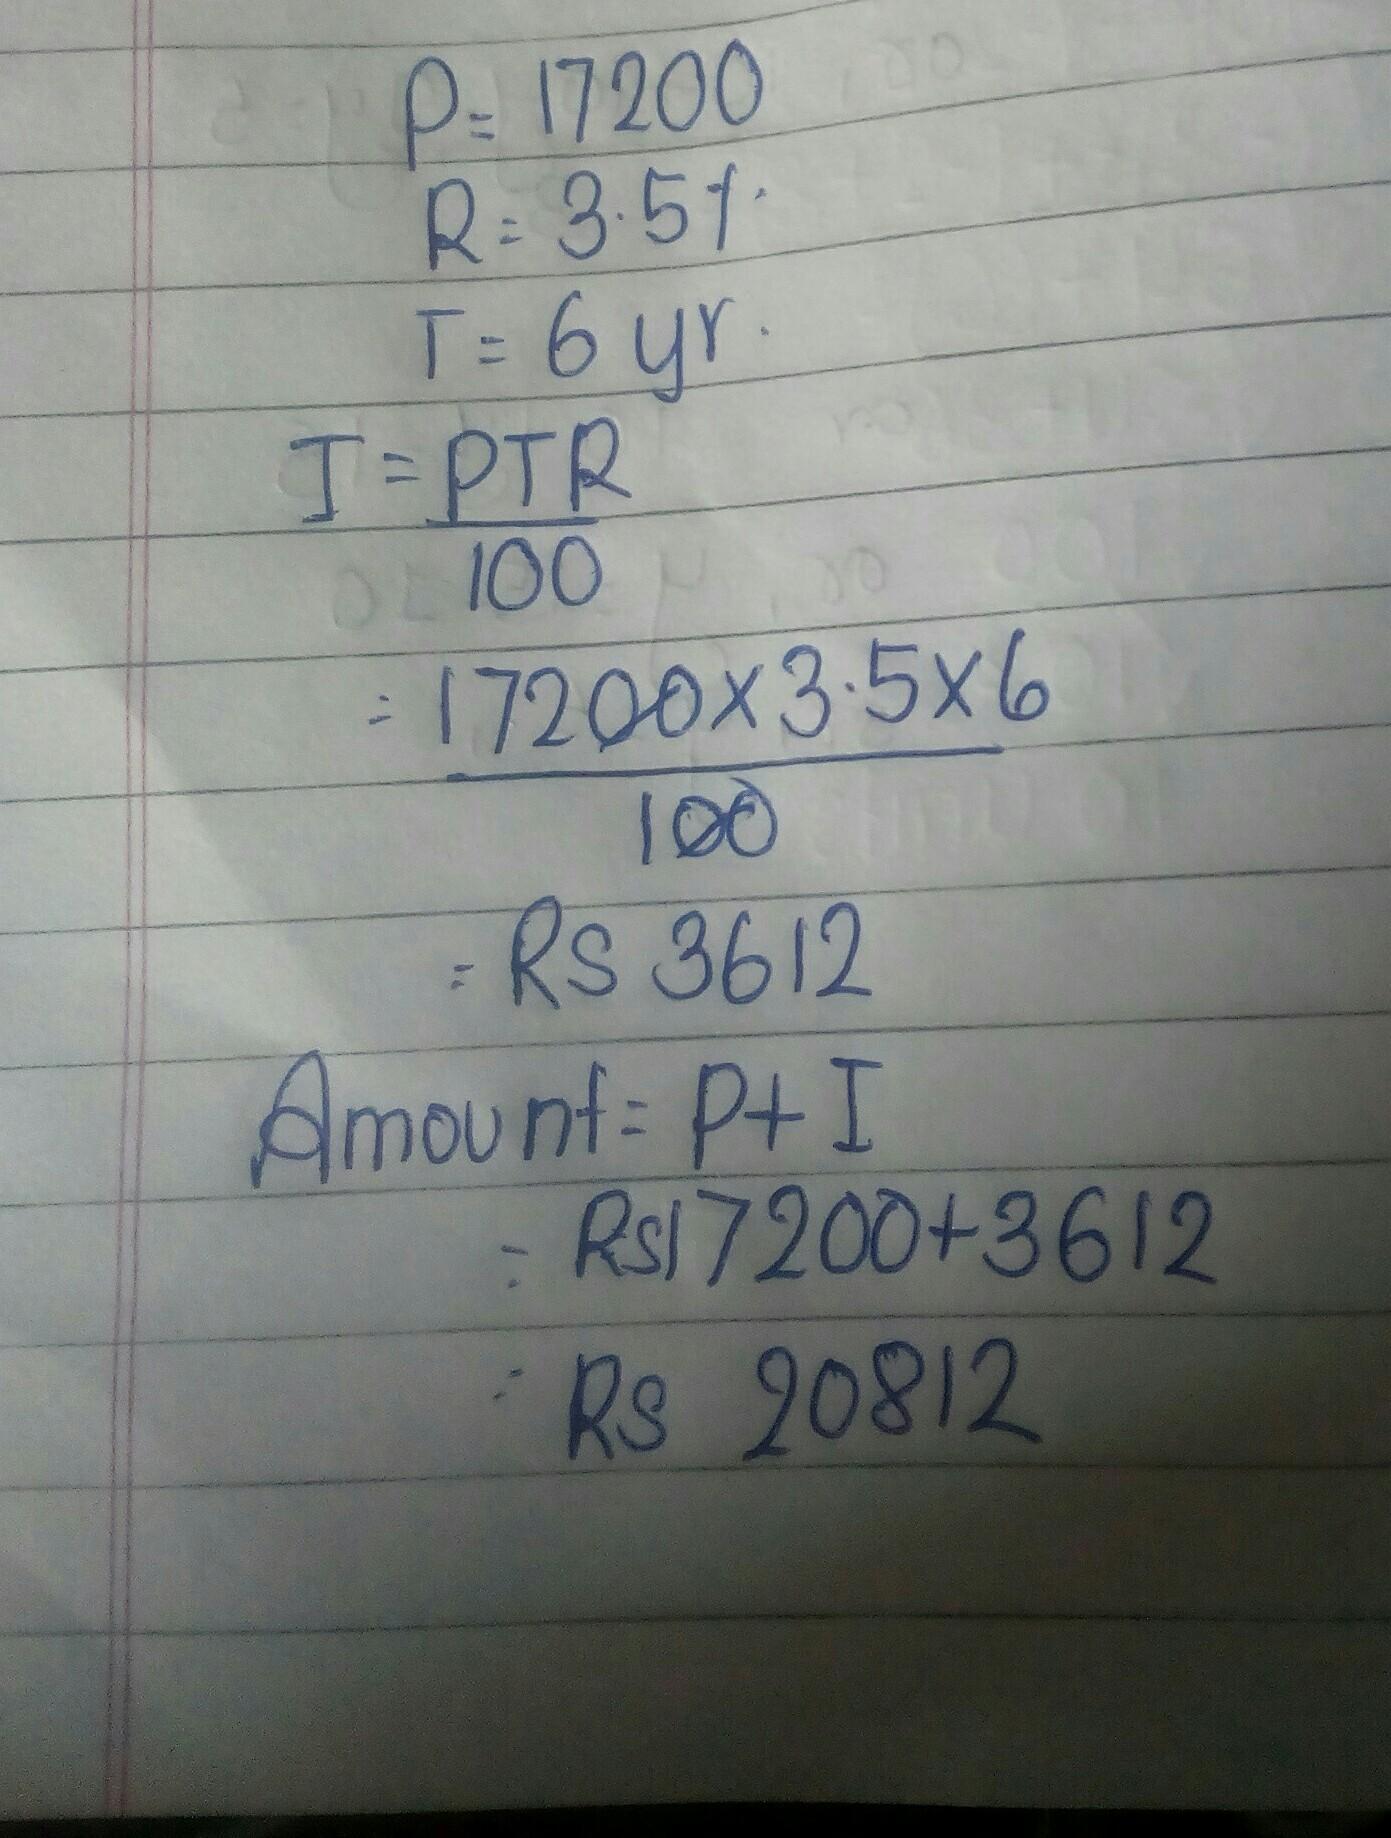 P= 17200
R= 3.5%
T= 6 yr.
I = PTR
100
= 17200x3.5x6
100
= Rs 3612
Amount= P+I
= Rs17200+3612
= Rs 20812